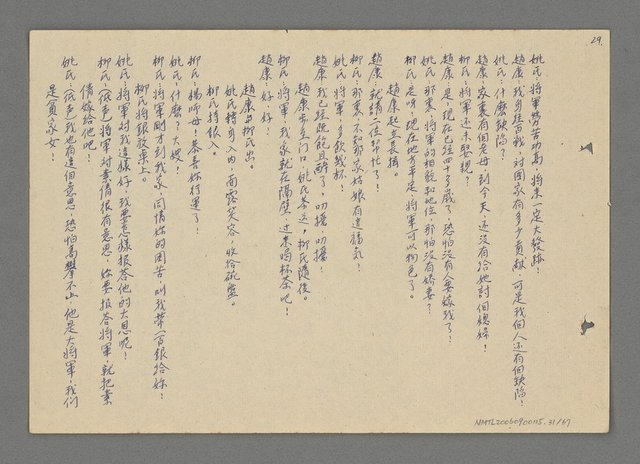 29.
姚氏：將軍勞苦功高，將來一定大發揚！
趙康：我身經百戰，對國家有多少貢獻，可是我個人還有個缺陷！
姚氏：什麼缺陷？
趙康：家裏有個老母，到今天，還沒有給她討個媳婦！
柳氏：將軍還未娶親？
趙康：是，現在已經四十多歲了，恐怕沒有人要嫁我了！
姚氏：那裏，將軍的相貌和地位，那怕沒有嬌妻？
柳氏：是呀，現在地方平定，將軍可以物色了。
趙康起立長揖。
趙康：就請二位幫忙了！
柳氏：那裏，不知那家姑娘有這福氣！
姚氏：將軍，多飲幾杯！
趙康：我已經既飽且醉了，叨擾，叨擾！
趙康步至門口，姚氏恭送，柳氏隨後。
柳氏：將軍，我家就在隔壁，过来喝杯茶吧！
趙康：好，好！
趙康與柳氏出。
姚氏轉身入內，面露笑容，收拾碗盤。
柳氏持銀入。
柳氏：楊師母！恭喜妳行運了！
姚氏：什麼？大嫂！
柳氏：將軍剛才到我家，同情妳的困苦，叫我帶一百銀給妳！
柳氏將銀放桌上。
姚氏：將軍對我這樣好，我要怎樣報答他的大恩呢！
柳氏：（低色）將軍對素倩很有意思，妳要报答將軍，就把素
倩嫁给他吧！
姚氏：（低色）我也有這個意思，恐怕高攀不上，他是大將軍，我們
是貧家女！
NMTL20060900115.31/67